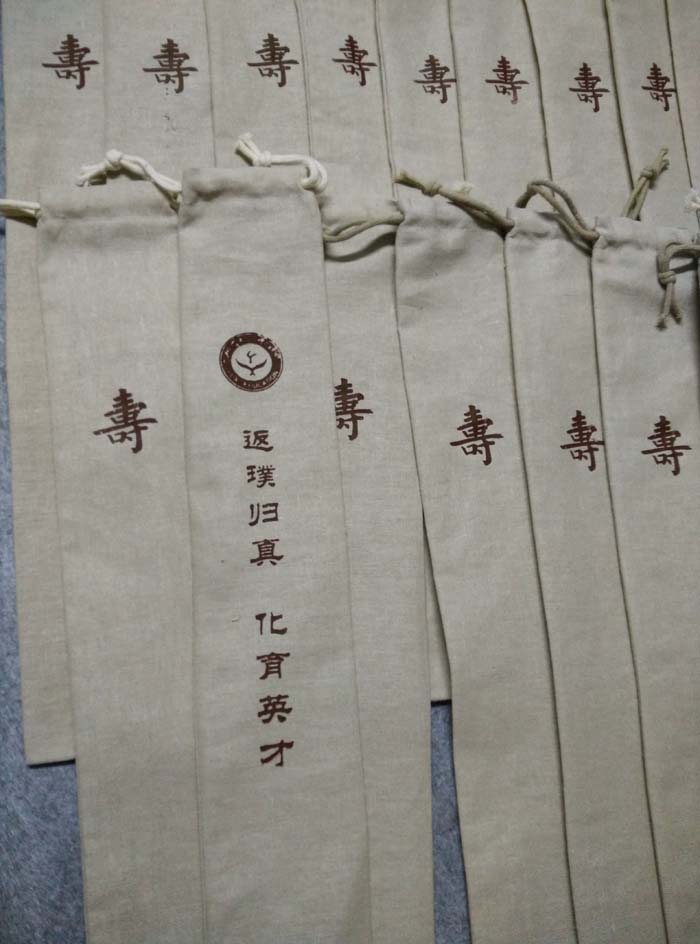 壽
壽
壽
壽
壽
壽
壽
壽
壽
返璞归真 化育英才
壽
壽
壽
壽